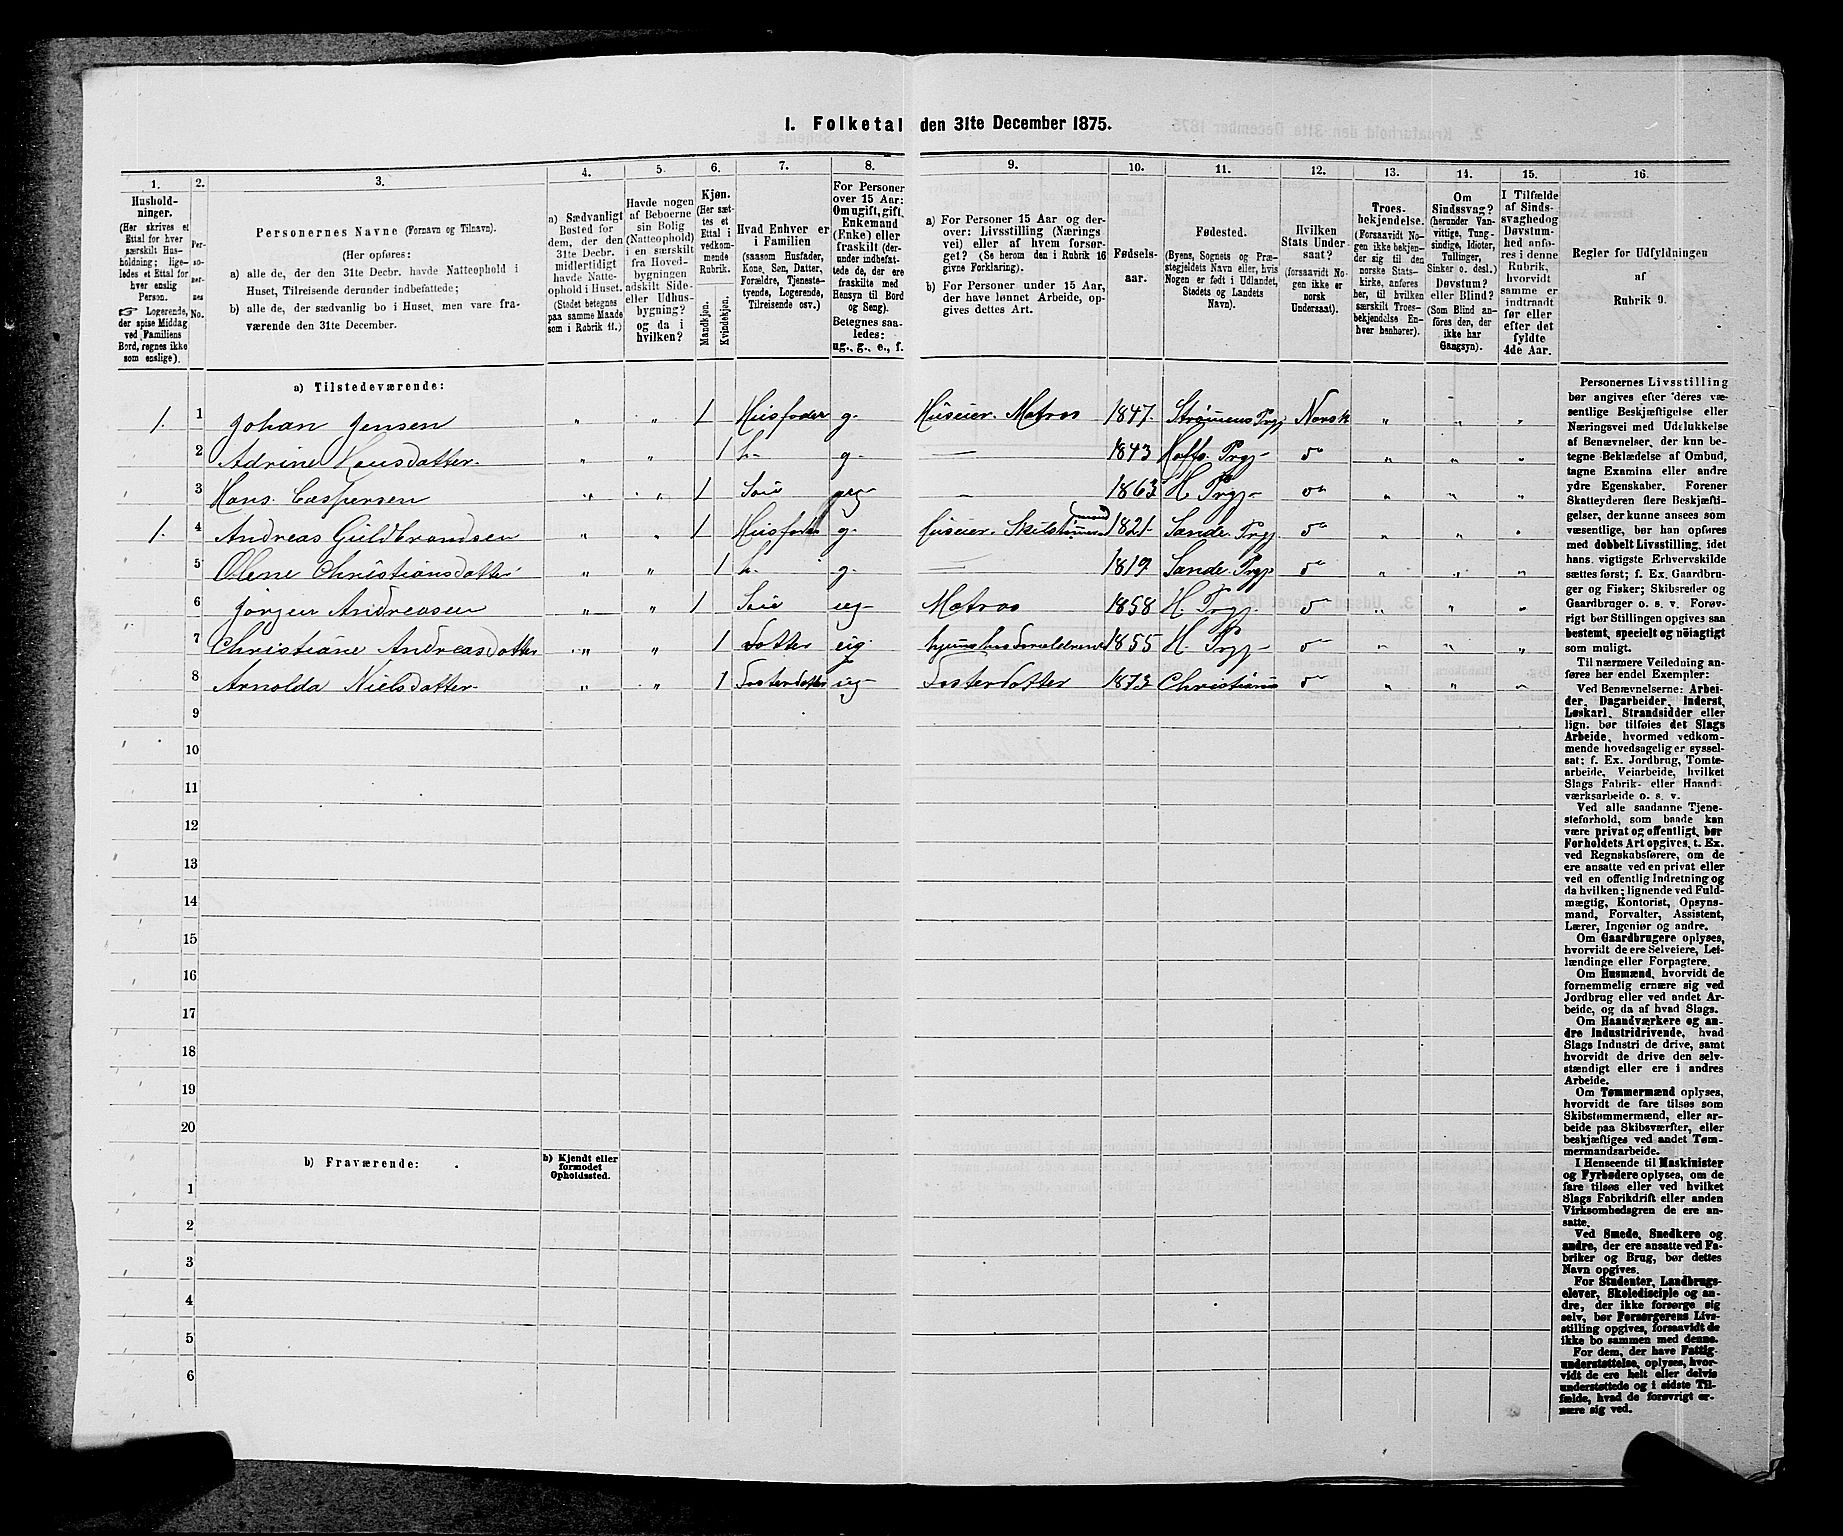 I. Folketal den 31te December 1875.
1.
Hushold-
ninger.
(Her skrives et
Ettal for hver
særskilt Hus-
holdning; lige-
ledes et Ettal for
hver enslig
Person.
☞ Logerende,
der spise Middag
ved Familiens
Bord, regnes ikke
som enslige).
2.
Per-
so-
ner-
nes
No.
3.
Personernes Navne (Fornavn og Tilnavn).
(Her opføres:
a) alle de, der den 31te Decbr. havde Natteophold i
Huset, Tilreisende derunder indbefattede;
b) alle de, der sædvanlig bo i Huset, men vare fra-
værende den 31te December.
4.
a) Sædvanligt
Bosted for
dem, der den
31te Decbr.
midlertidigt
havde Natte-
ophold i Huset.
(Stedet betegnes
paa samme Maade
som i Rubrik 11.)
5.
Havde nogen
af Beboerne
sin Bolig
(Natteophold)
i en særskilt
fra Hoved-
bygningen
adskilt Side-
eller Udhus-
bygning?
og da i
hvilken?
6.
Kjøn.
(Her sæt-
tes et
Ettal i
vedkom-
mende
Rubrik.
Mandkjøn.
Kvindekjøn.
7.
Hvad Enhver er
i Familien
(saasom Husfader,
Kone, Søn, Datter,
Forældre, Tjeneste-
tyende, Logerende,
Tilreisende osv.)
8.
For Personer
over 15 Aar:
Om ugift, gift,
Enkemand
(Enke) eller
fraskilt (der-
under indbefat-
tede de, der ere
fraskilte med
Hensyn til Bord
og Seng).
Betegnes saa-
ledes:
ug., g., e., f.
9.
a) For Personer 15 Aar og der-
over: Livsstilling (Nærings
vei) eller af hvem forsør-
get? (Se herom den i Rubrik 16
givne Forklaring).
b) For Personer under 15 Aar,
der have lønnet Arbeide, op-
gives dettes Art.
10.
Fødsels-
aar.
11.
Fødested.
(Byens, Sognets og Præ-
stegjeldets Navn eller, hvis
Nogen er født i Udlandet,
Stedets og Landets
Navn).
12.
Hvilken
Stats Under-
saat?
(forsaavidt No-
gen ikke er
norsk
Undersaat).
13.
Troes-
bekjendelse.
(Forsaavidt No-
gen ikke bekjen-
der sig til den
norske Stats-
kirke, anføres
her, til hvilken
særskilt Troes-
bekjendelse En-
hver henhører).
14.
Om
Sindssvag?
(herunder Van-
vittige, Tung-
sindige, Idioter,
Tullinger,
Sinker o. desl.)
Døvstum?
eller Blind?
(Som Blind an-
føres den, der
ikke har
Gangsyn).
15.
I Tilfælde
af Sinds-
svaghed og
Døvstum-
hed anfø-
res i denne
Rubrik,
hvorvidt
samme er
indtraadt
før eller
efter det
fyldte
4de Aar.
16.
Regler for Udfyldningen
af
Rubrik 9.
a) Tilstedeværende:
1. 1 Johan Jensen „ „ 1 Husfader g. Huseier. Matros 1847. Strømens Prgj Norsk „ „ „
2 Adrine Hansdatter. „ „ 1 g. — 1843 Hoffs. Prgj „ „ „
3 Hans Caspersen „ „ 1 — 1863 H. Prgj „ „ „
1. 4 Andreas Guldbrandsen „ „ 1 Husfader g. Huseier. 1821. Sande. Prgj „ „ „
5 Olene Christiansdatter „ „ 1 g. — 1819 Sande. Prgj „ „ „
6 Jørgen Andreasen „ „ 1 ug Matros 1858 H. Prgj. „ „ „
7 Christiane Andreasdatter „ „ 1 Datter ug. 1855 H. Prgj „ „ „
8 Arnolda Nielsdatter. „ „ 1 Fosterdatter ug Fosterdatter 1873 Christiania „ „ „
9
10
11
12
13
14
15
16
17
18
19
20
b) Fraværende:
b) Kjendt eller
formodet
Opholdssted.
1
2
3
4
5
6
Personernes Livsstilling
bør angives efter deres væ-
sentlige Beskjæftigelse eller
Næringsvei med Udelukkelse
af Benævnelser, der kun be-
tegne Beklædelse af Ombud,
tagne Examina eller andre
ydre Egenskaber. Forener
Skatteyderen flere Beskjæfti-
gelser, der kunne ansees som
væsentlige, bør han opføres
med dobbelt Livsstilling, idet
hans vigtigste Erhvervskilde
sættes først; f. Ex. Gaardbru-
ger og Fisker; Skibsreder og
Gaardbruger o. s. v. Forøv-
rigt bør Stillingen opgives saa
bestemt, specielt og nøiagtigt
som muligt.
Til nærmere Veiledning an-
føres her endel Exempler:
Ved Benævnelserne: Arbei-
der, Dagarbeider, Inderst,
Løskarl, Strandsidder eller
lign. bør tilføies det Slags
Arbeide, hvormed vedkom-
mende hovedsagelig er syssel-
sat; f. Ex. Jordbrug, Tomte-
arbeide, Veiarbeide, hvilket
Slags Fabrik- eller Haand-
værksarbeide o. s. v.
Ved alle saadanne Tjene-
steforhold, som baade kan
være privat og offentligt, bør
Forholdets Art opgives, t. Ex.
ved Regnskabsførere, om de
ere ansatte ved en privat eller
ved en offentlig Indretning og
da hvilken; lignende ved Fuld-
mægtig, Kontorist, Opsyns-
mand, Forvalter, Assistent,
Lærer, Ingeniør og andre.
Om Gaardbrugere oplyses,
hvorvidt de ere Selveiere, Lei-
lændinge eller Forpagtere.
Om Husmænd, hvorvidt de
fornemmelig ernære sig ved
Jordbrug eller ved andet Ar-
beide, og da af hvad Slags.
Om Haandværkere og an-
dre Industridrivende, hvad
Slags Industri de drive, samt
hvorvidt de drive den selv-
stændigt eller ere i andres
Arbeide.
Om Tømmermænd oplyses,
hvorvidt de fare tilsøs som
Skibstømmermænd, eller ar-
beide paa Skibsværfter, eller
beskjæftiges ved andet Tøm-
mermandsarbeide.
I Henseende til Maskinister
og Fyrbødere oplyses, om de
fare tilsøs eller ved hvilket
Slags Fabrikdrift eller anden
Virksomhedsgren de ere an-
satte.
Ved Smede, Snedkere og
andre, der ere ansatte ved Fa-
briker og Brug, bør dettes
Navn opgives.
For Studenter, Landbrugs-
elever, Skoledisciple og an-
dre, der ikke forsørge sig
selv, bør Forsørgerens Livs-
stilling opgives, forsaavidt de
ikke bo sammen med denne.
For dem, der have Fattig-
understøttelse, oplyses, hvor-
vidt de ere helt eller delvis
understøttede og i sidste Til-
fælde, hvad de forøvrigt er-
nære sig ved.